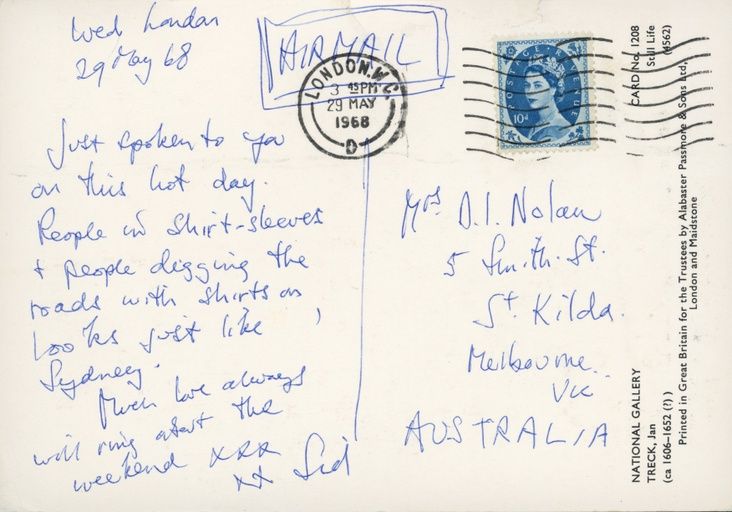 Wed London
29 May 68
AIRMAIL
LONDON. W.C.
3 45PM
29 MAY
1968
D
POSTAGE REVENUE
10d
Just spoken to you
on this hot day.
People in shirt-sleeves
+ people digging the
roads with shirts on
looks just like
Sydney.
Much love always
will ring about the
weekend xxx
xx Sid
Mrs D.I. Nolan
5 Smith St.
St. Kilda.
Melbourne.
Vic
AUSTRALIA
NATIONAL GALLERY
TRECK, Jan
(ca 1606–1652 (?) )
CARD No. 1208
Still Life
(4562)
Printed in Great Britain for the Trustees by Alabaster Passmore & Sons Ltd,
London and Maidstone